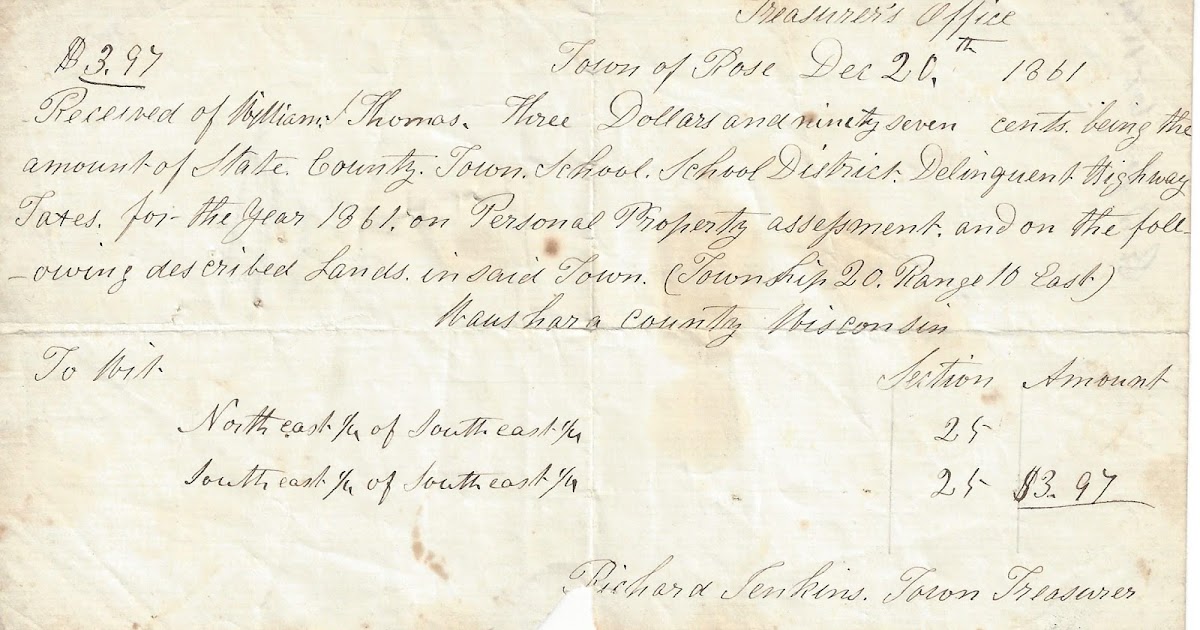 Treasurer's Office
$3.97
Town of Rose Dec 20.th 1861
Received of William Thomas. three Dollars and ninety seven cents. being the
amount of State. County. Town. School. School District. Delinquent Highway
Taxes. for the Year 1861. on Personal Property assessment. and on the foll-
-owing described Lands. in said Town. (Township 20. Range 10 East)
Waushara county Wisconsin
To Wit Section Amount
North east 1/4 of South east 1/4 25
South east 1/4 of South east 1/4 25 $3.97
Richard Jenkins. Town Treasurer